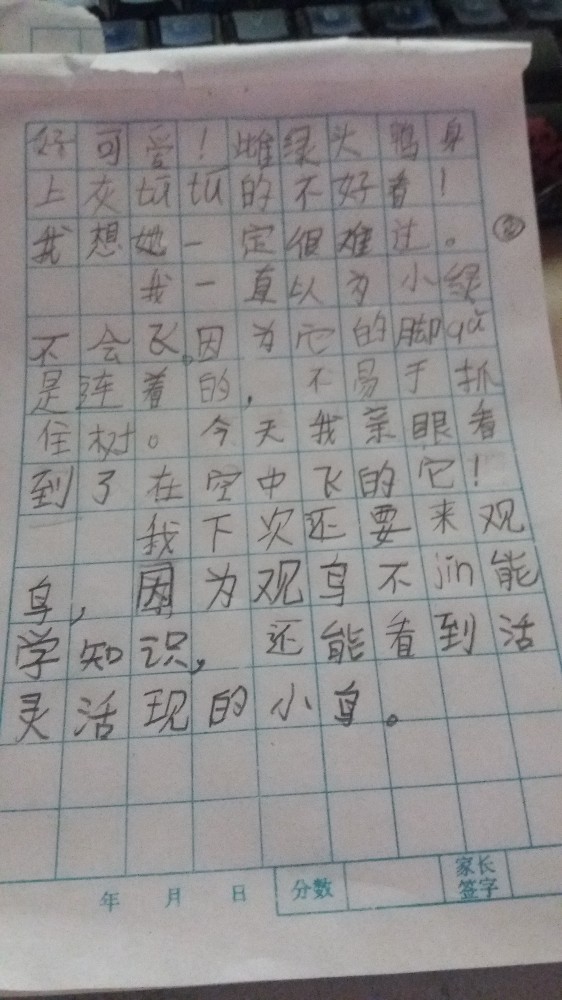 好可爱！雌绿头鸭身
上灰tū tū的不好看！
我想她一定很难过。
②
我一直以为小绿
不会飞，因为它的脚qǔ
是连着的，不易于抓
住树。今天我亲眼看
到了在空中飞的它！
我下次还要来观
鸟，因为观鸟不jǐn能
学知识，还能看到活
灵活现的小鸟。
年 月 日 分数 家长签字